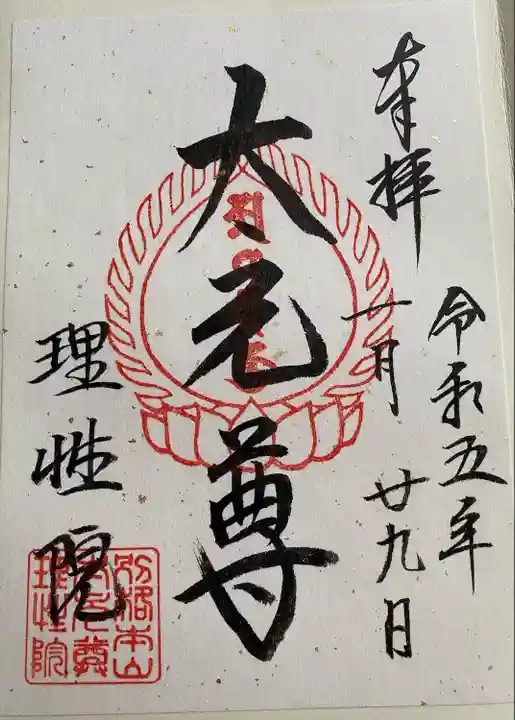 奉拝
令和五年
十一月廿九日
大元尊
理性院
別格本山
大元尊
理性院